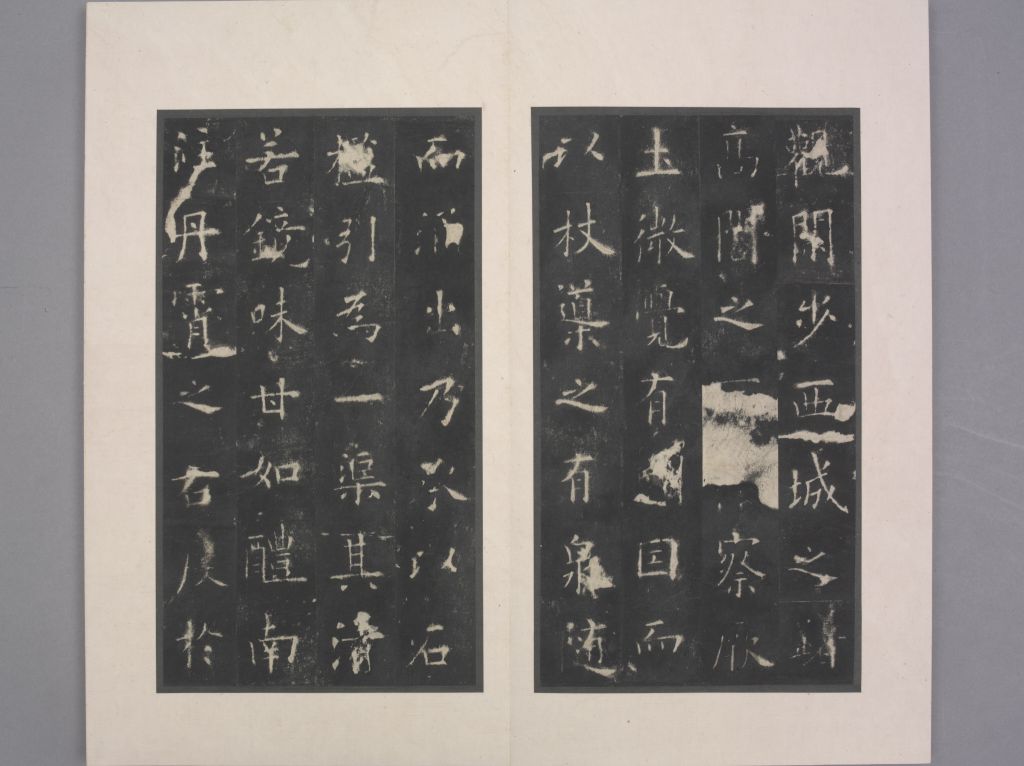 觀閑步西城之
高閣之察厥
土微覺有潤因而
以杖導之有泉隨
而涌出乃承以石
檻引為一渠其清
若鏡味甘如醴南
注丹霄之右度於